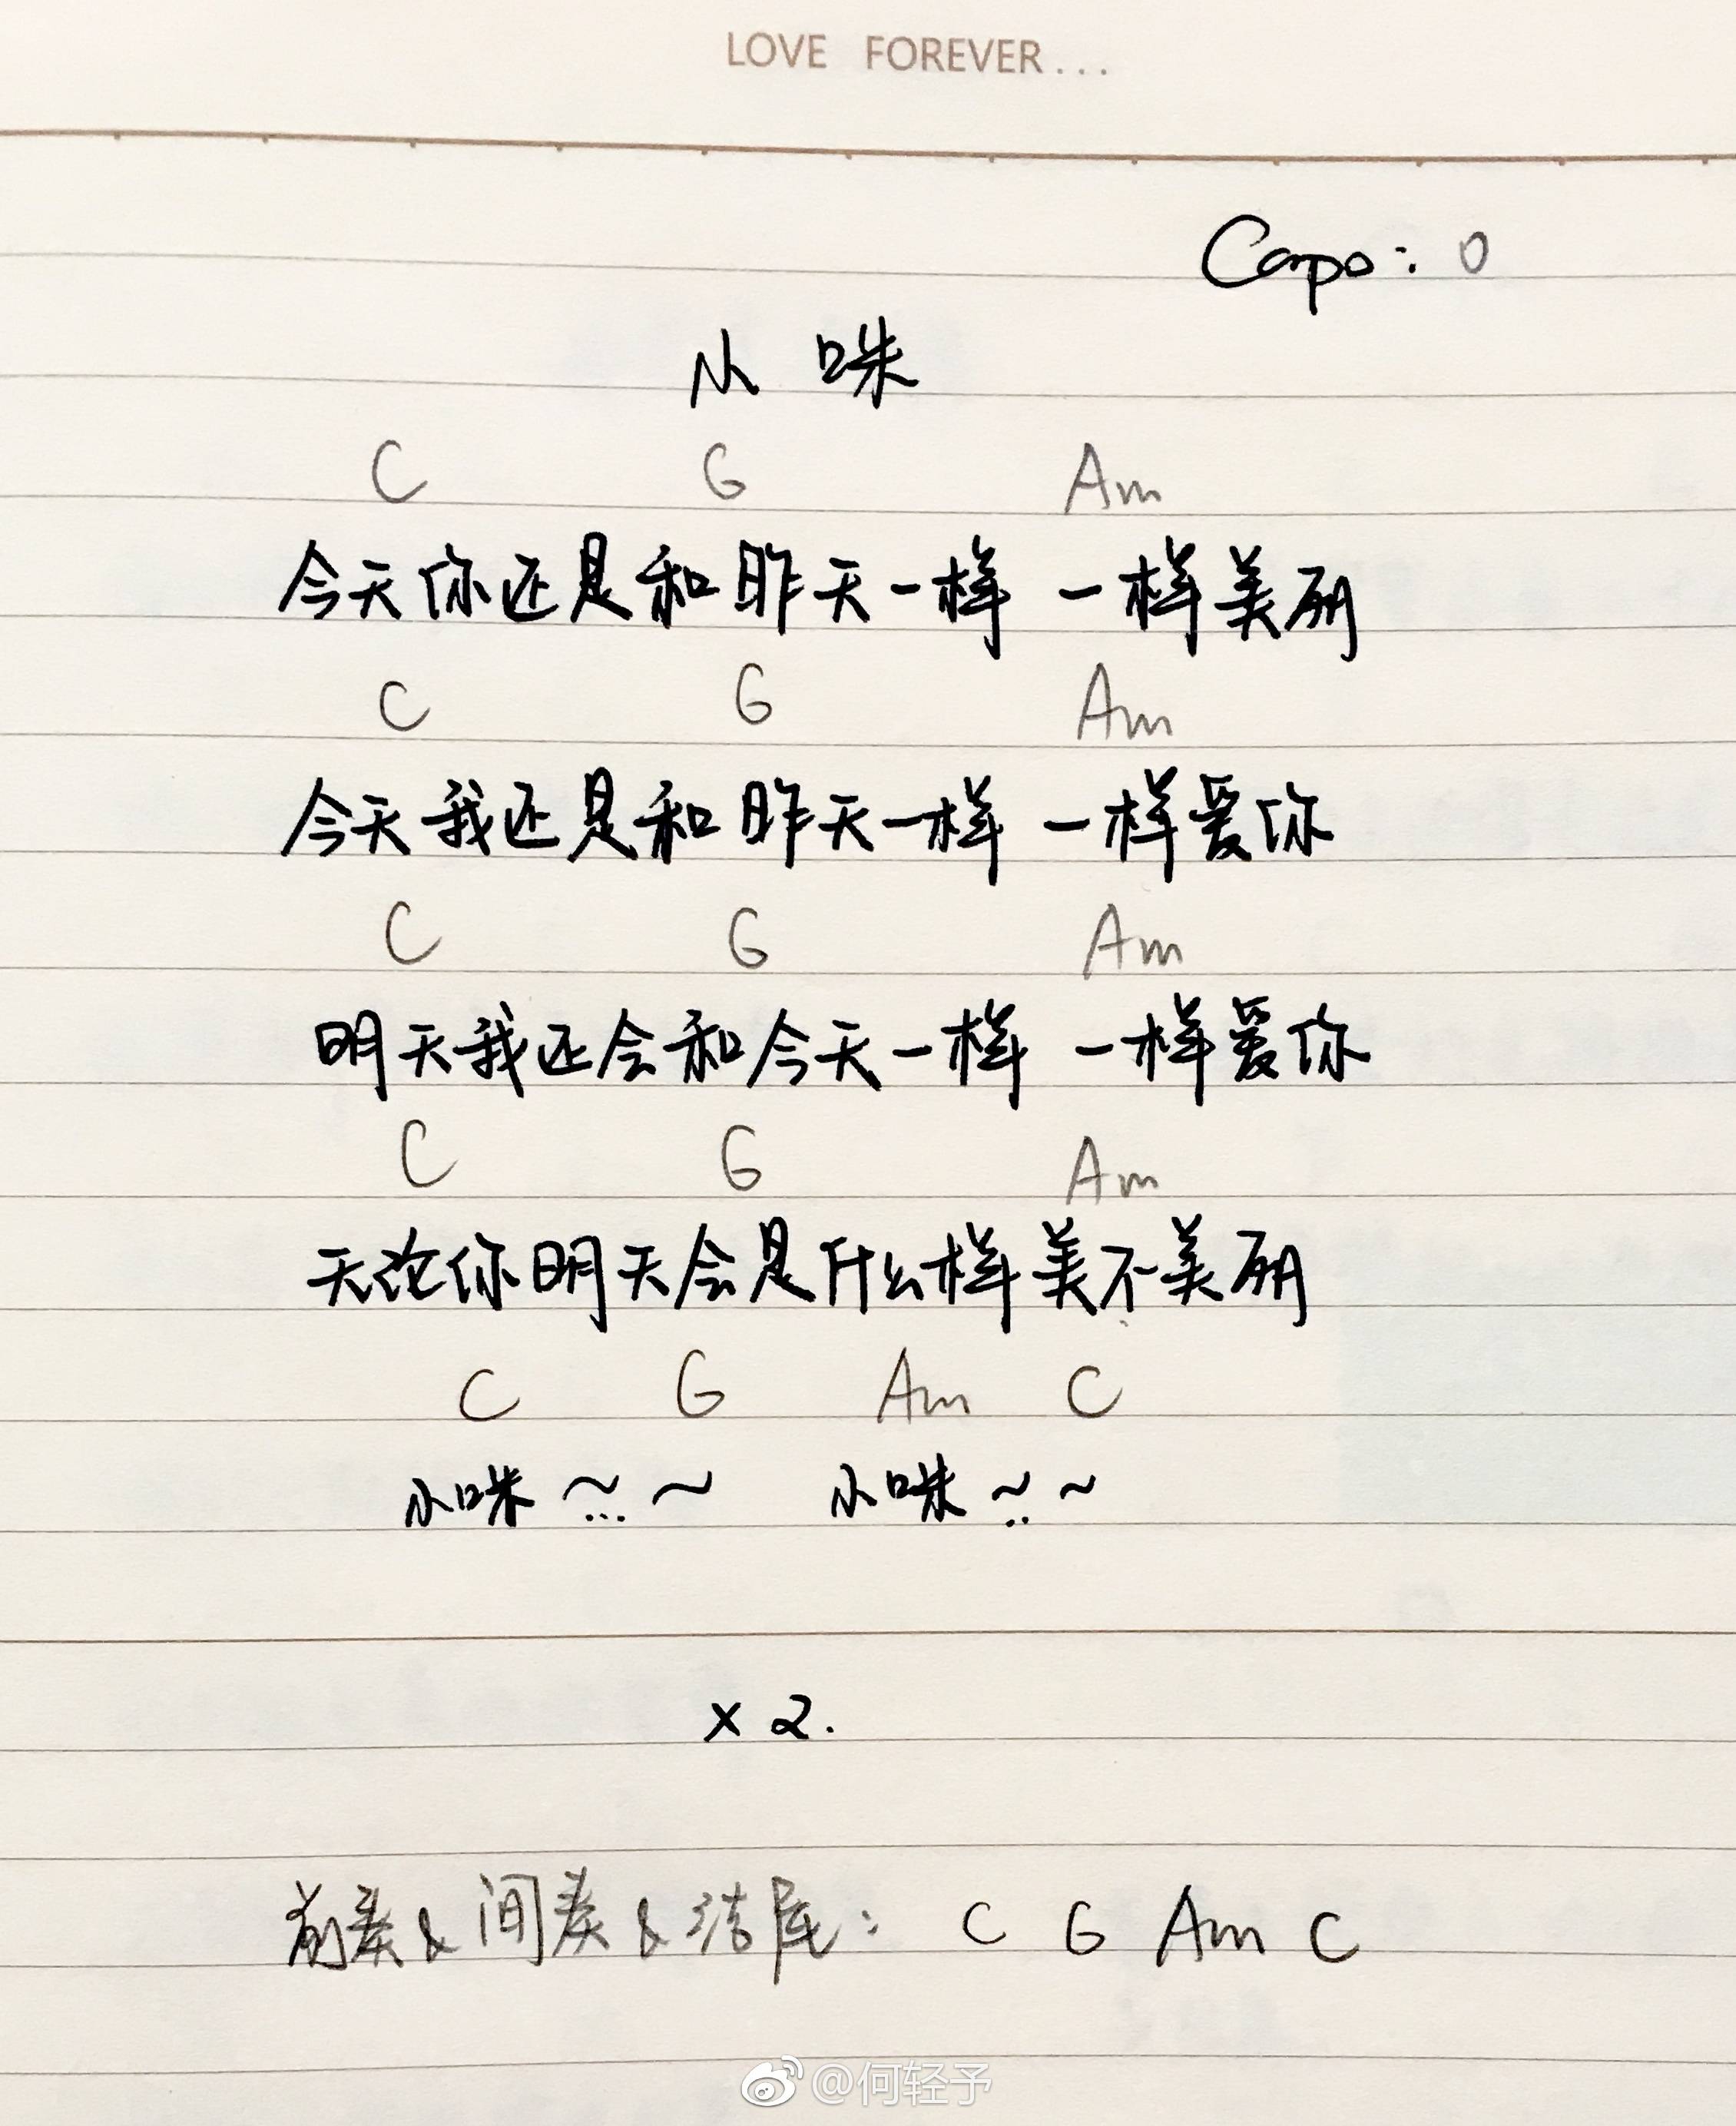 LOVE FOREVER...
Capo: 0
小咪
C G Am
今天你还是和昨天一样 一样美丽
C G Am
今天我还是和昨天一样 一样爱你
C G Am
明天我还会和今天一样 一样爱你
C G Am
无论你明天会是什么样 美不美丽
C G Am C
小咪～...～ 小咪～..～
x 2.
前奏 & 间奏 & 结尾: C G Am C
@何轻予